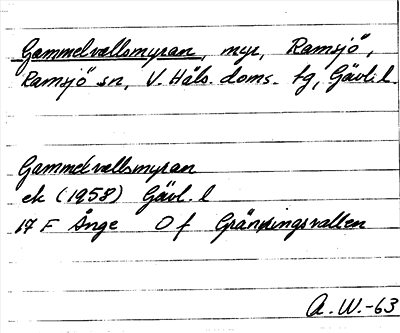 Gammelvallsmyran, myr, Ramsjö,
Ramsjö sn, V. Häls. doms. tg, Gävl. l.
Gammelvallsmyran
ek (1958) Gävl. l
17 F Ånge O f Gränningsvallen
A. W. -63